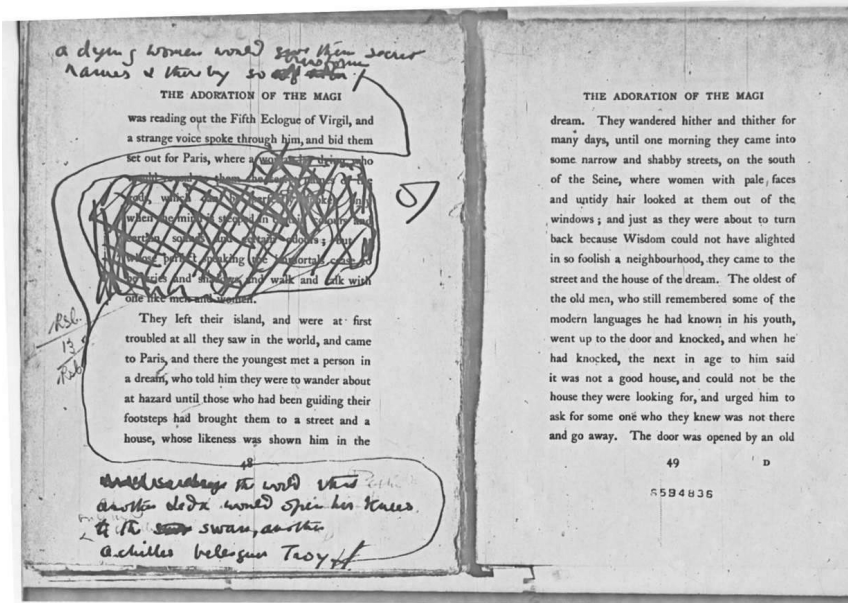 a dying women would give them secret
names & thereby so transform
THE ADORATION OF THE MAGI
was reading out the Fifth Eclogue of Virgil, and
a strange voice spoke through him, and bid them
set out for Paris, where a dying who
them the names of the
gods, which can be perfectly spoken only
when the mind is steeped in and
certain sounds and certain odours; but
whose perfect speaking the immortals cease to
be cries and shadows, and walk and talk with
one like men and women.
They left their island, and were at first
troubled at all they saw in the world, and came
to Paris, and there the youngest met a person in
a dream, who told him they were to wander about
at hazard until those who had been guiding their
footsteps had brought them to a street and a
house, whose likeness was shown him in the
48
the world that
another Leda would open her knees
to the swan, another
achilles beleaguer Troy
THE ADORATION OF THE MAGI
dream. They wandered hither and thither for
many days, until one morning they came into
some narrow and shabby streets, on the south
of the Seine, where women with pale faces
and untidy hair looked at them out of the
windows; and just as they were about to turn
back because Wisdom could not have alighted
in so foolish a neighbourhood, they came to the
street and the house of the dream. The oldest of
the old men, who still remembered some of the
modern languages he had known in his youth,
went up to the door and knocked, and when he
had knocked, the next in age to him said
it was not a good house, and could not be the
house they were looking for, and urged him to
ask for some one who they knew was not there
and go away. The door was opened by an old
49 D
S594836